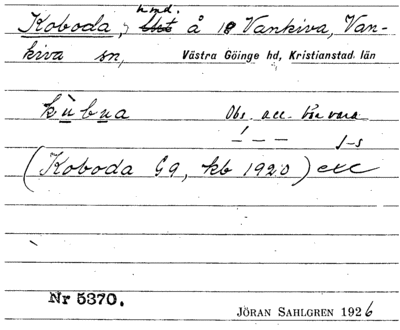 hmd.
Koboda, å 18 Vankiva, Van-
kiva sn, Västra Göinge hd, Kristianstad län
kùbua Obs. acc. bör vara
/ — — — J-s
(Koboda G9, kb 1920) exc
Nr 5370.
JÖRAN SAHLGREN 1926